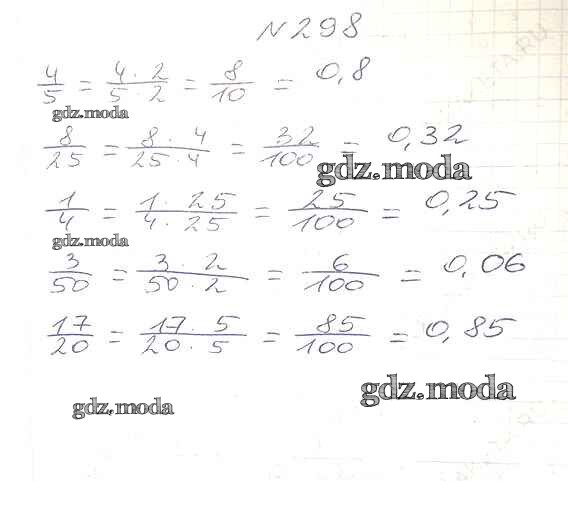 N 298
4/5 = 4 · 2/5 · 2 = 8/10 = 0,8
gdz.moda
8/25 = 8 · 4/25 · 4 = 32/100 = 0,32
gdz.moda
1/4 = 1 · 25/4 · 25 = 25/100 = 0,25
gdz.moda
3/50 = 3 · 2/50 · 2 = 6/100 = 0,06
17/20 = 17 · 5/20 · 5 = 85/100 = 0,85
gdz.moda
gdz.moda